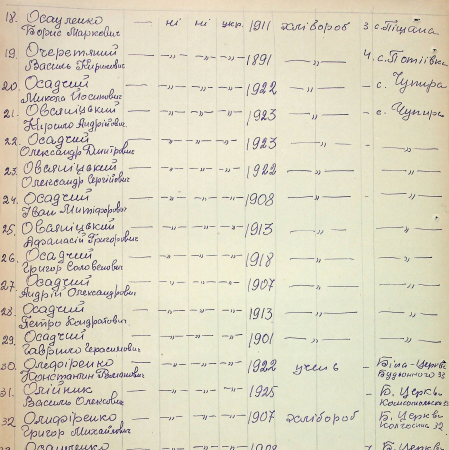 18. Осауленко — ні ні укр. 1911 хлібороб 3 с. Піщана
Борис Маркович
19. Очеретяний — „ — „ — „ 1891 — „ — 4. с. Потіївка
Василь Кирилович
20. Осадчий — „ — „ — „ 1922 — „ — - с. Чупира
Микола Йосипович
21. Овсяніцький — „ — „ — „ 1923 — „ — - с. Чупира
Кирило Андрійович
22. Осадчий — „ — „ — „ 1923 — „ — — „ —
Олександр Дмитрович
23. Овсяніцький — „ — „ — „ 1922 — „ — — „ —
Олександр Сергійович
24. Осадчий — „ — „ — „ 1908 — „ — — „ —
Іван Митрофорович
25. Овсяніцький — „ — „ — „ 1913 — „ — — „ —
Афанасій Григорович
26. Осадчий — „ — „ — „ 1918 — „ — — „ —
Григор Соловейович
27. Осадчий — „ — „ — „ 1907 — „ — — „ —
Андрій Олександрович
28. Осадчий — „ — „ — „ 1913 — „ — — „ —
Петро Кондратович
29. Осадчий — „ — „ — „ 1901 — „ — — „ —
Гаврило Герасимович
30. Олефіренко — „ — „ — „ 1922 учень Біла-Церква
Константин Романович Будьонного 38
31. Олійник — „ — „ — „ 1925 — Б. Церква
Василь Олексович Комсомольська
32. Олифіренко — „ — „ — „ 1907 хлібороб Б. Церква
Григор Михайлович Колгоспна 32